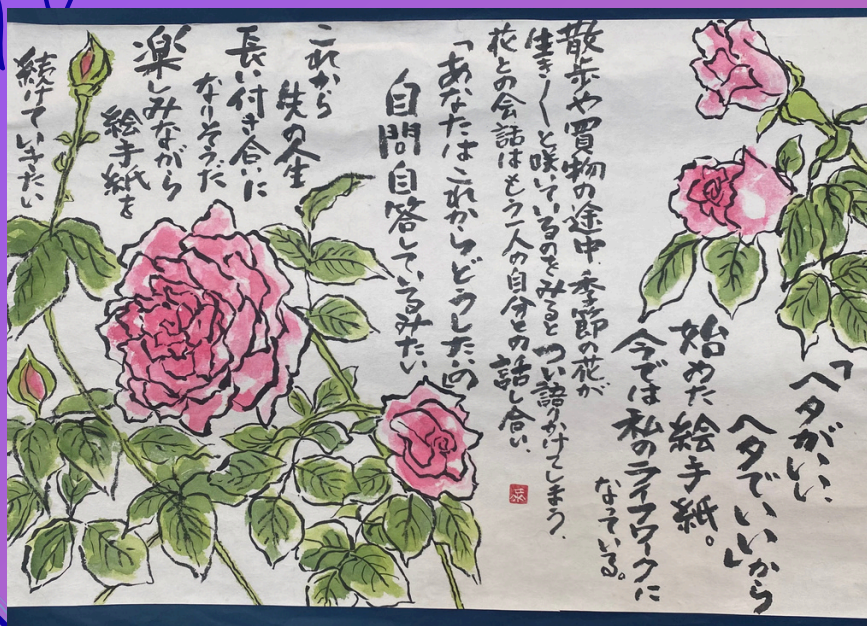 「ヘタがいい、
ヘタでいい」から
始めた絵手紙。
今では私のライフワークに
なっている。
散歩や買物の途中、季節の花が
生き／＼と咲いているのをみると つい語りかけてしまう、
花との会話はもう一人の自分との話し合い、
「あなたはこれからどうしたいの」
自問自答しているみたい
これから
先の人生
長い付き合いに
なりそうだ
楽しみながら
絵手紙を
続けていきたい